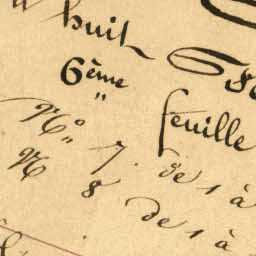 huit
6ème
feuille
No 7. de 1 à
N 8 de 1 à